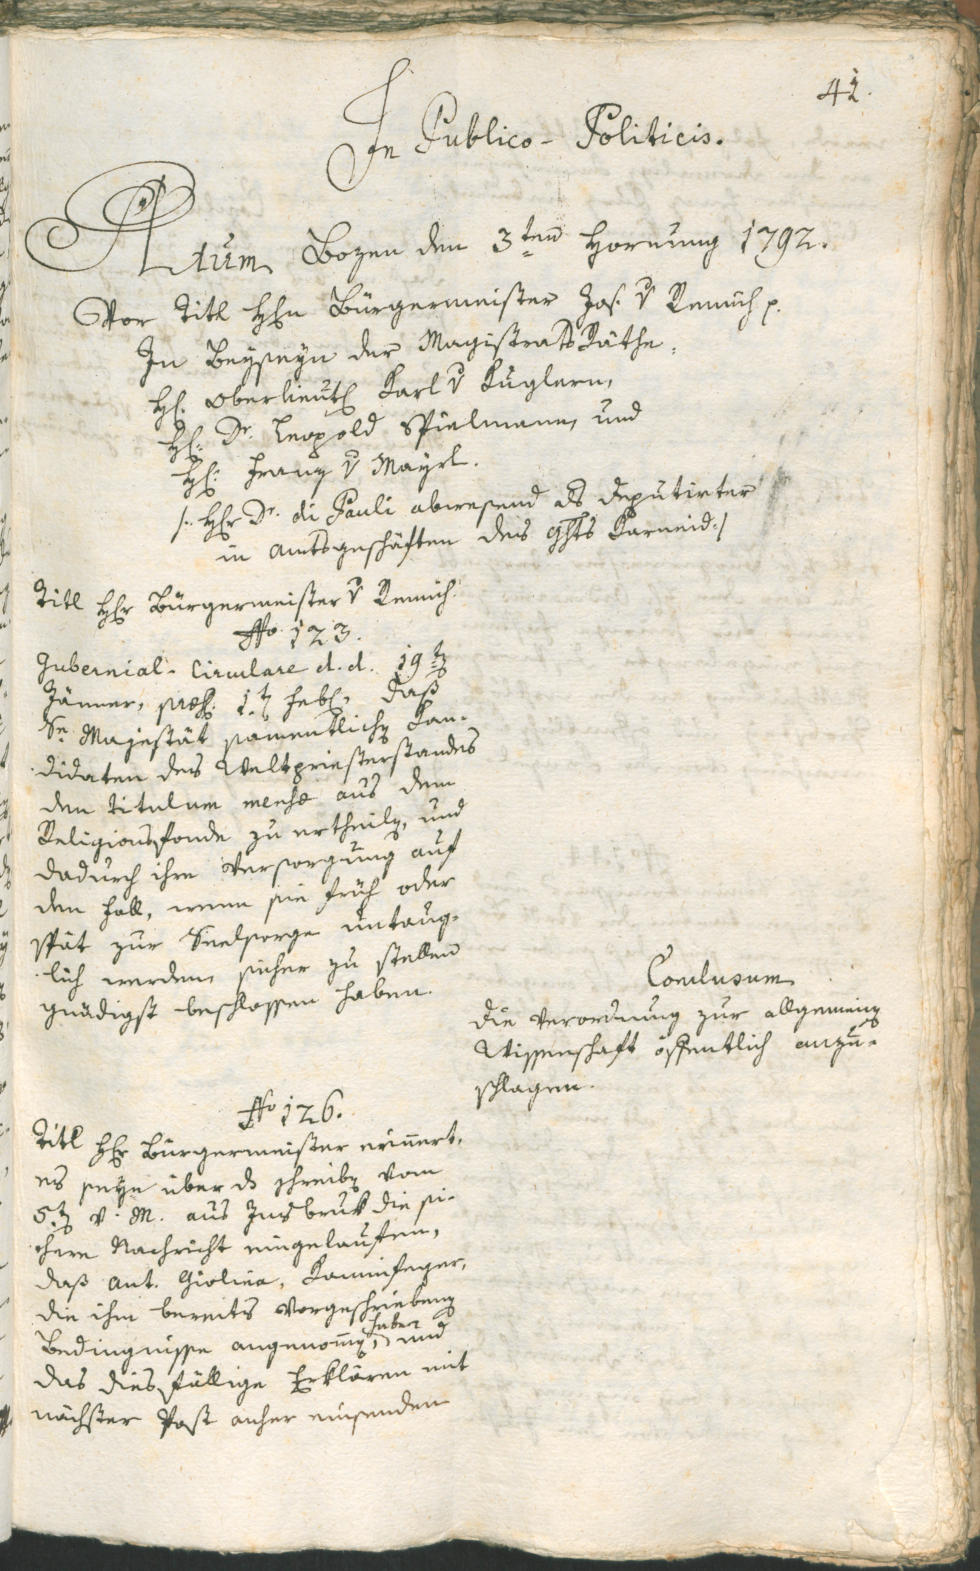 42.
In Publico-Politicis.
Actum Bozen den 3ten Hornung 1792.
Vor Titl Hhn Bürgermeister Jos. v Remich p.
In Beyseyn der Magistrats Räthe,
Hl. Oberlieut. Karl v Kuglern,
Hl. Dr. Leopold Spielmann, und
Hl. Franz v Mayrl.
/: Hhr Dr. di Pauli abwesend als deputirter
in amtsgeschäften des ghts Karneid :/
Titl Hhr Bürgermeister v Remich.
No 123.
Gubernial-Circulare d. d. 19tn
Jänner, præs. 1tn Feb., daß
Se Majestät sämentlichen Kan-
didaten des Weltpriesterstandes
den titulum mensæ aus dem
Religionsfonde zu ertheiln, und
dadurch ihre Versorgung auf
den Fall, wenn sie früh oder
spät zur Seelsorge untaug-
lich werden, sicher zu stellen
gnädigst beschlossen haben.
Conclusum
die Verordnung zur allgemeinen
Wissenschaft öffentlich anzu-
schlagen.
No 126.
Titl Hhr Bürgermeister erinnert,
es seye über ds schreiben vom
5tn v. M. aus Insbruk die si-
chere Nachricht eingelauffen,
daß Ant. Giolina, Kaminfeger,
die ihm bereits vorgeschriebene
Bedingnisse angenomen haben, und
das diesfällige Erklären mit
nächster Post anher einsenden